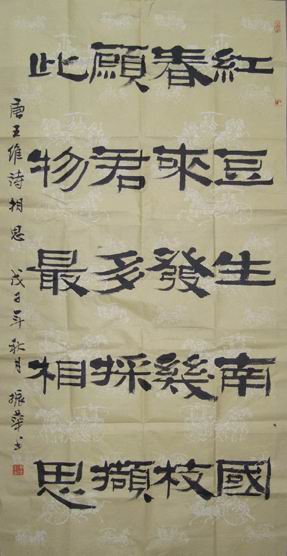 紅豆生南國
春來發幾枝
願君多採擷
此物最相思
唐王維詩相思 戊子年秋月 振華书